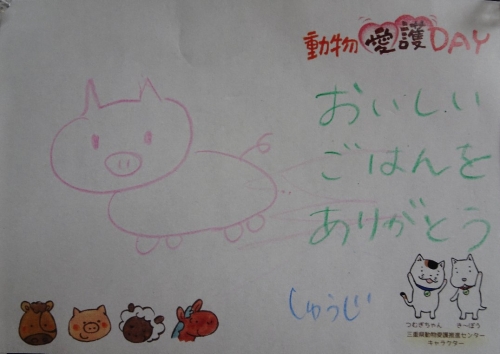 動物愛護DAY
おいしい
ごはんを
ありがとう
しゅうじ
つむぎちゃん
きーぼう
三重県動物愛護推進センター
キャラクター